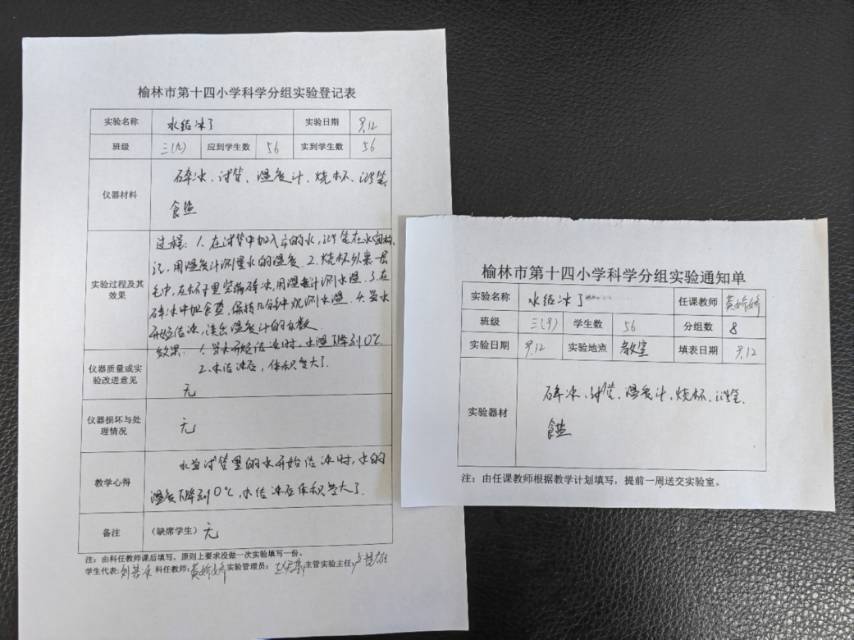 榆林市第十四小学科学分组实验登记表
实验名称 水结冰了 实验日期 9.12
班级 三(九) 应到学生数 56 实到学生数 56
仪器材料 碎冰、试管、温度计、烧杯、记号笔
食盐
实验过程及其效果
过程：1.在试管中加入
用温度计测量水的温度 2.烧杯外裹一层
毛巾,在杯子里装满碎冰,用温度计测水温 3.在
碎冰中加食盐,保持几分钟观测水温 4.当水
开始结冰,读出温度计的
效果：1.当水开始结冰时,水温下降到0℃
2.水结冰后,体积变大了.
仪器质量或实验改进意见 无
仪器损坏与处理情况 无
教学心得 水当试管里的水开始结冰时,水的
温度下降到0℃,水结冰后体积变大了.
备注 (缺席学生) 无
注：由科任教师课后填写。原则上要求没做一次实验填写一份。
学生代表: 科任教师: 实验管理员: 主管实验主任:
榆林市第十四小学科学分组实验通知单
实验名称 水结冰了 任课教师
班级 三(9) 学生数 56 分组数 8
实验日期 9.12 实验地点 教室 填表日期 9.12
实验器材 碎冰、试管、温度计、烧杯、记号笔、
食盐
注：由任课教师根据教学计划填写，提前一周送交实验室。